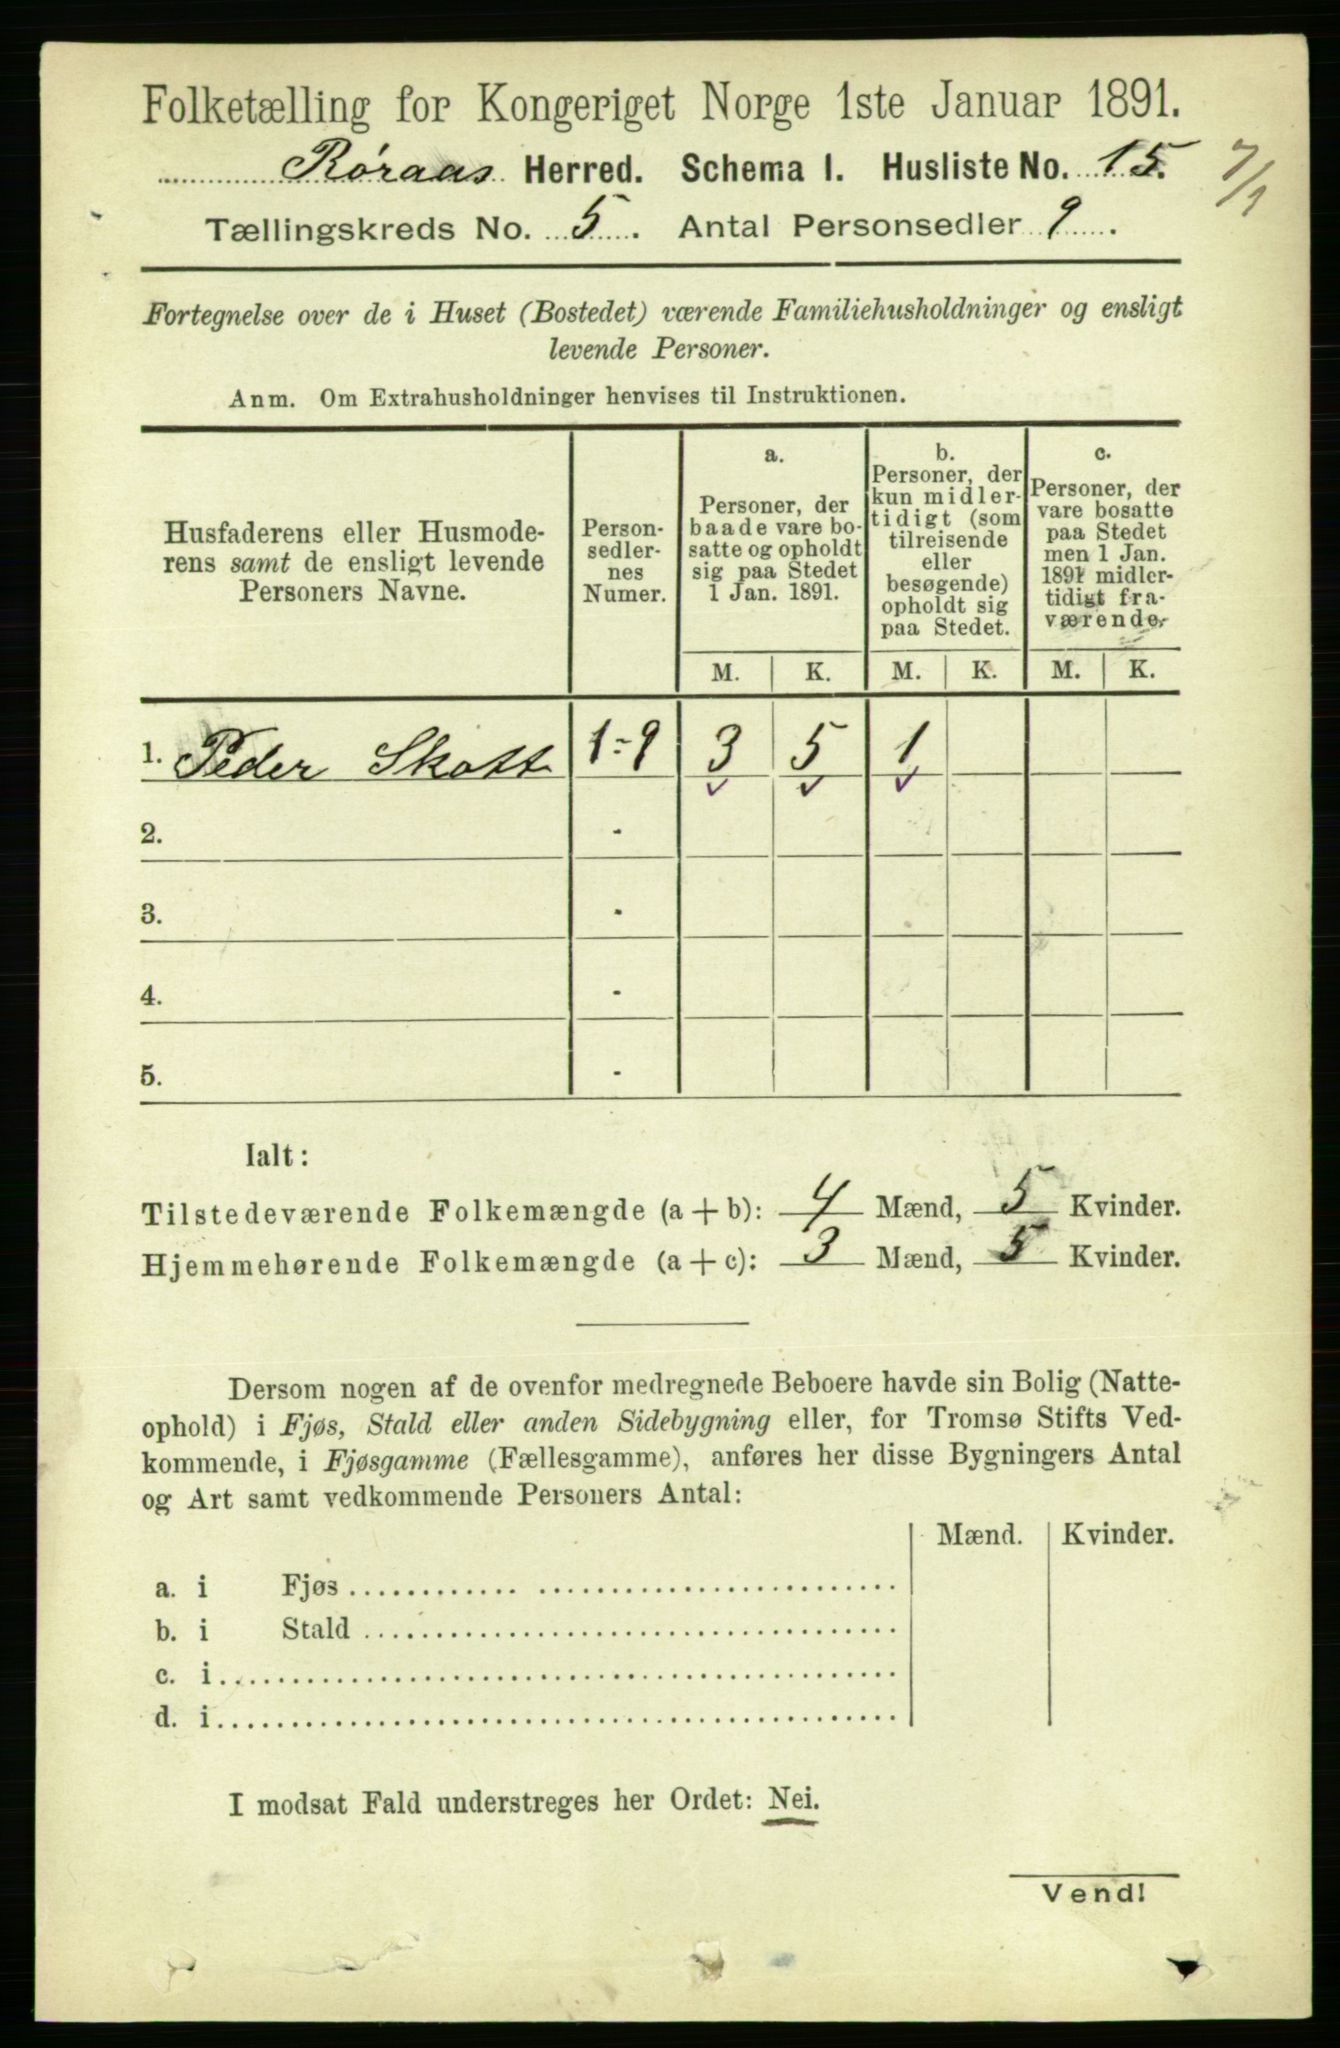 Folketælling for Kongeriget Norge 1ste Januar 1891.
Røraas Herred. Schema 1. Husliste No. 15.
7/1
Tællingskreds No. 5. Antal Personsedler 9.
Fortegnelse over de i Huset (Bostedet) værende Familiehusholdninger og ensligt
levende Personer.
Anm. Om Extrahusholdninger henvises til Instruktionen.
Husfaderens eller Husmode-
rens samt de ensligt levende
Personers Navne.
Person-
sedler-
nes
Numer.
a.
Personer, der
baade vare bo-
satte og opholdt
sig paa Stedet
1 Jan. 1891.
b.
Personer, der
kun midler-
tidigt (som
tilreisende
eller
besøgende)
opholdt sig
paa Stedet.
c.
Personer, der
vare bosatte
paa Stedet
men 1 Jan.
1891 midler-
tidigt fra-
værende.
M. K. M. K. M. K.
1. Peder Skott 1-9 3 5 1
2. -
3. -
4. -
5. -
Ialt:
Tilstedeværende Folkemængde (a + b): 4 Mænd, 5 Kvinder.
Hjemmehørende Folkemængde (a + c): 3 Mænd, 5 Kvinder.
Dersom nogen af de ovenfor medregnede Beboere havde sin Bolig (Natte-
ophold) i Fjøs, Stald eller anden Sidebygning eller, for Tromsø Stifts Ved-
kommende, i Fjøsgamme (Fællesgamme), anføres her disse Bygningers Antal
og Art samt vedkommende Personers Antal:
Mænd. Kvinder.
a. i Fjøs
b. i Stald
c. i
d. i
I modsat Fald understreges her Ordet: Nei.
Vend!